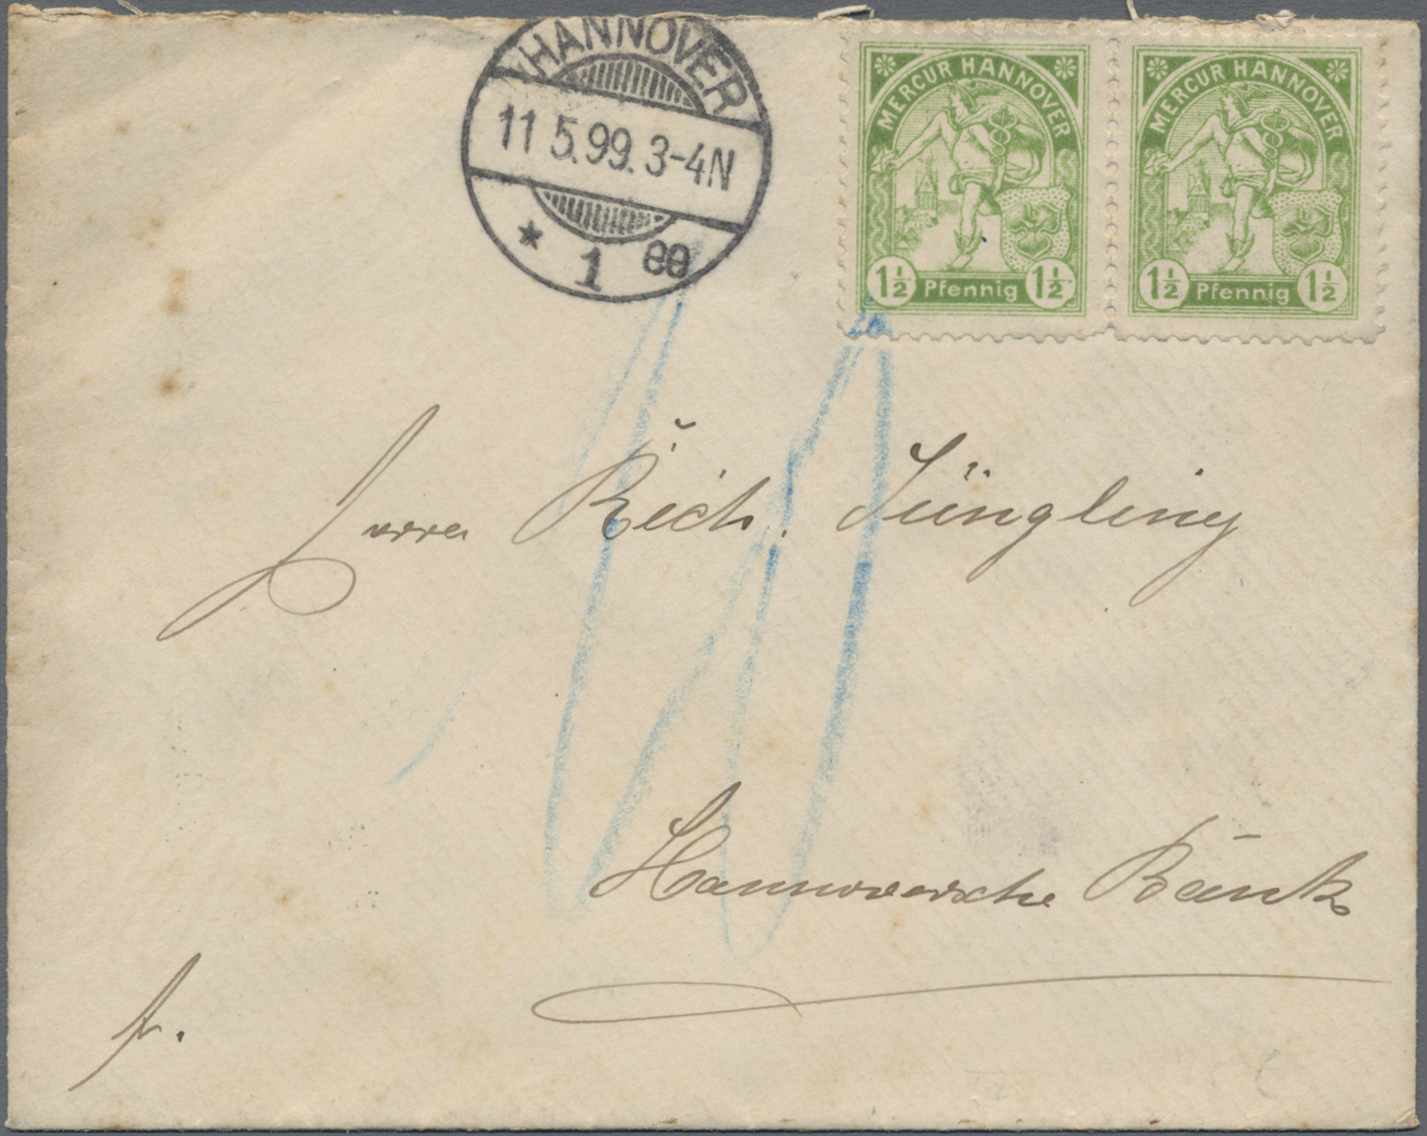 HANNOVER
11 5.99. 3-4N
* 1 ee
MERCUR HANNOVER
1½ Pfennig 1½
MERCUR HANNOVER
1½ Pfennig 1½
Herrn Rich. Jüngling
Hannoversche Bank